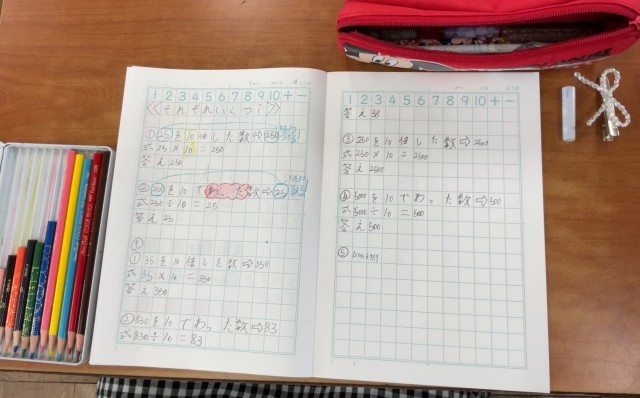 1 2 3 4 5 6 7 8 9 10 + −
《それぞれいくつ?》
① 25を10倍した数⇨250
式25×10=250
答え250
② 250を10でわった数⇨25
式250÷10=25
答え25
①35を10倍した数⇨350
式35×10=350
答え350
②830を10でわった数⇨83
式830÷10=83
1 2 3 4 5 6 7 8 9 10 + −
答え
③250を10倍した数⇨2500
式250×10=2500
答え2500
④5000を10でわった数⇨500
式5000÷10=500
答え500
⑤